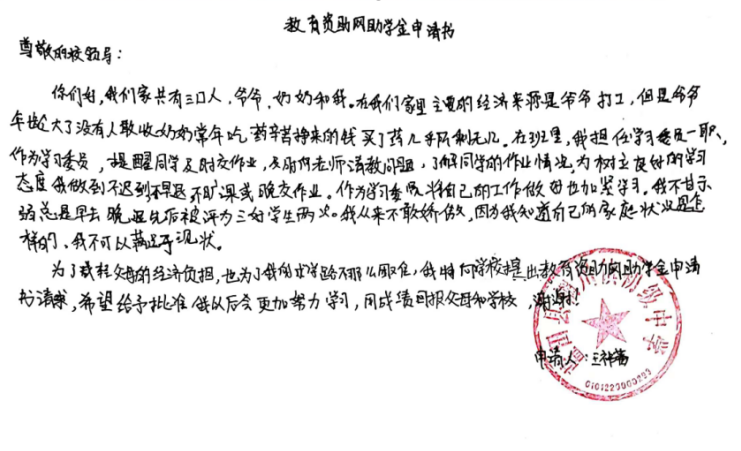 教育资助网助学金申请书
尊敬的校领导：
你们好，我们家共有三口人，爷爷、奶奶和我。在我们家里主要的经济来源是爷爷打工，但是爷爷
年龄大了没有人敢收奶奶常年吃药辛苦挣来的钱买了药几乎所剩无几。在班里，我担任学习委员一职、
作为学习委员，提醒同学及时交作业，及时向老师请教问题，了解同学的作业情况，为树立良好的学习
态度我做到不迟到不早退不旷课或晚交作业。作为学习委员将自己的工作做好也加紧学习。我不甘示
弱总是早去晚退先后被评为三好学生两次。我从来不敢娇傲，因为我知道自己的家庭状况是怎
样的、我不可以满足于现状。
为了减轻父母的经济负担，也为了我的求学路不那么艰难，我特向学校提出教育资助网助学金申请
书请求，希望给予批准我以后会更加努力学习，用成绩回报父母和学校，谢谢！
申请人：王
0101220000293